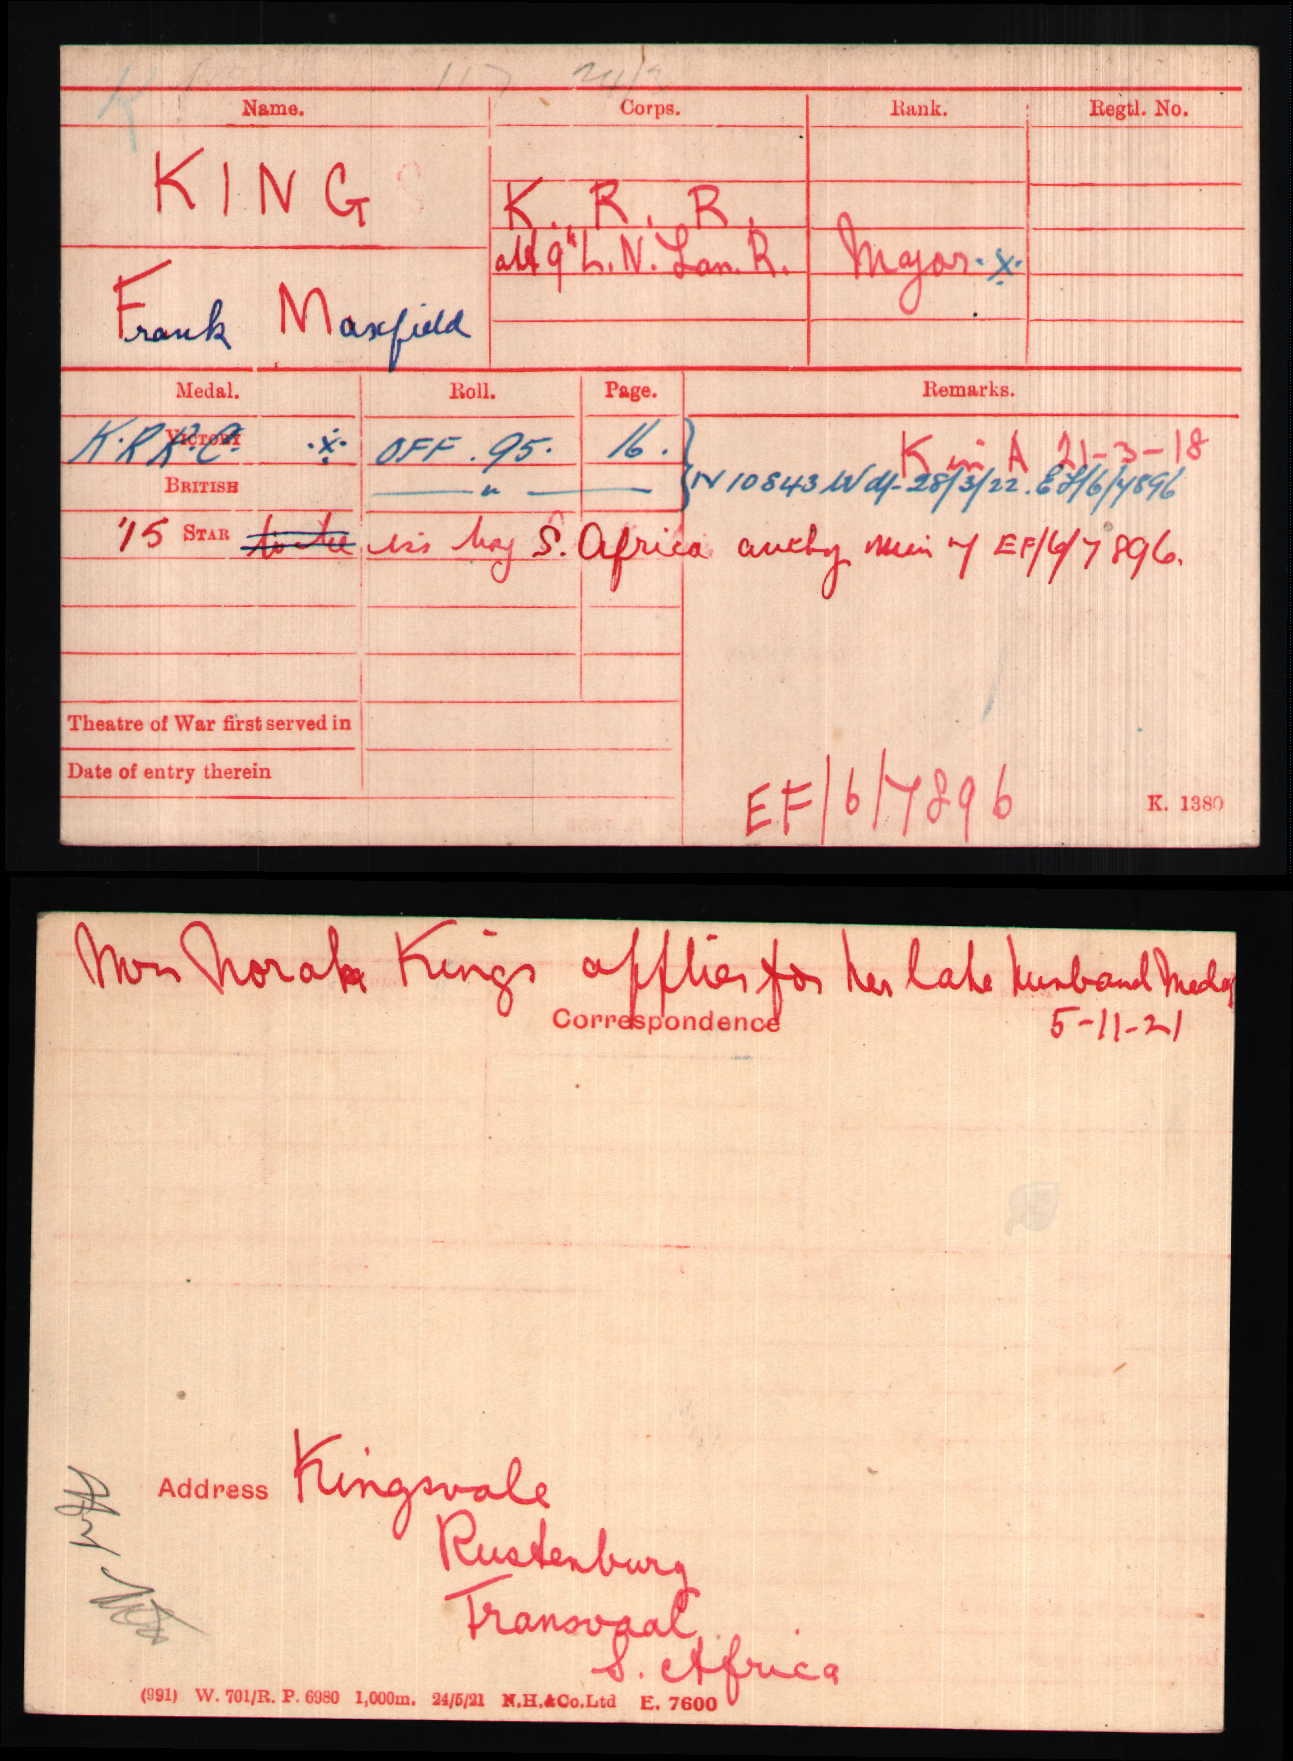 K 117 24/3
Name. Corps. Rank. Regtl. No.
KING
K. R. R.
att 9th L. N. Lan. R. Major. x.
Frank Maxfield
Medal. Roll. Page. Remarks.
VICTORY K. R. R. C. x. OFF. 95. 16. K in A 21-3-18
BRITISH — " — IV 10843 W d/- 28/3/22. EF/6/7896
'15 STAR iss by S. Africa authy min of EF/6/7896.
Theatre of War first served in
Date of entry therein
EF/6/7896
K. 1380
Mrs Norah Kings applies for her late husband Medals
Correspondence 5-11-21
Address Kingsvale
Rustenburg
Transvaal
S. Africa
(991) W. 701/R. P. 6980 1,000m. 24/5/21 N.H.&Co.Ltd E. 7600